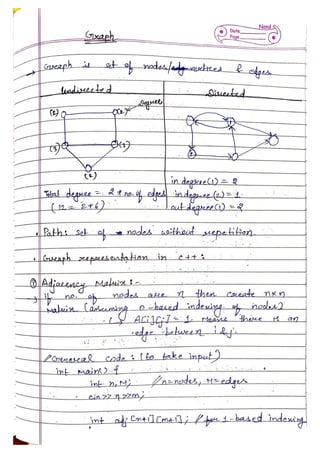 Date
Page
Graph
→ Graph is set of nodes/vertices & edges
Undirected
Directed
degree
(2)
(2)
(3)
(3)
(2)
1
2
in degree(1) = 2
Total degree = 2 * no. of edges
in degree(2) = 1
(12 = 2*6)
out degree(1) = 2
• Path: set of nodes without repetition.
• Graph representation in c++ :
① Adjacency Matrix :-
→ if no. of nodes are n then create nxn
Matrix (assuming 0-based indexing of nodes)
A[i][j] = 1 Means there is an
edge between i & j.
// General code : (to take input)
int main() {
int n, m; // n=nodes, m=edges
cin>> n >>m;
int adj [n+1][m+1]; // for 1-based indexing